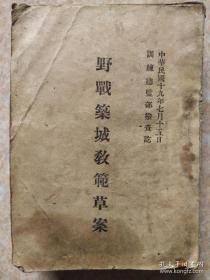 中華民國十九年七月十五日
訓練總監部審查訖
野戰築城教範草案